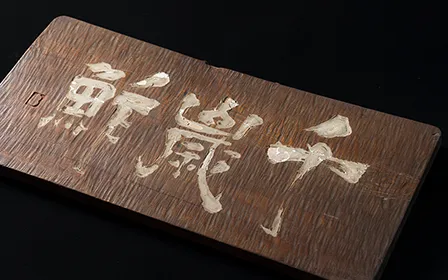 千歳鮓